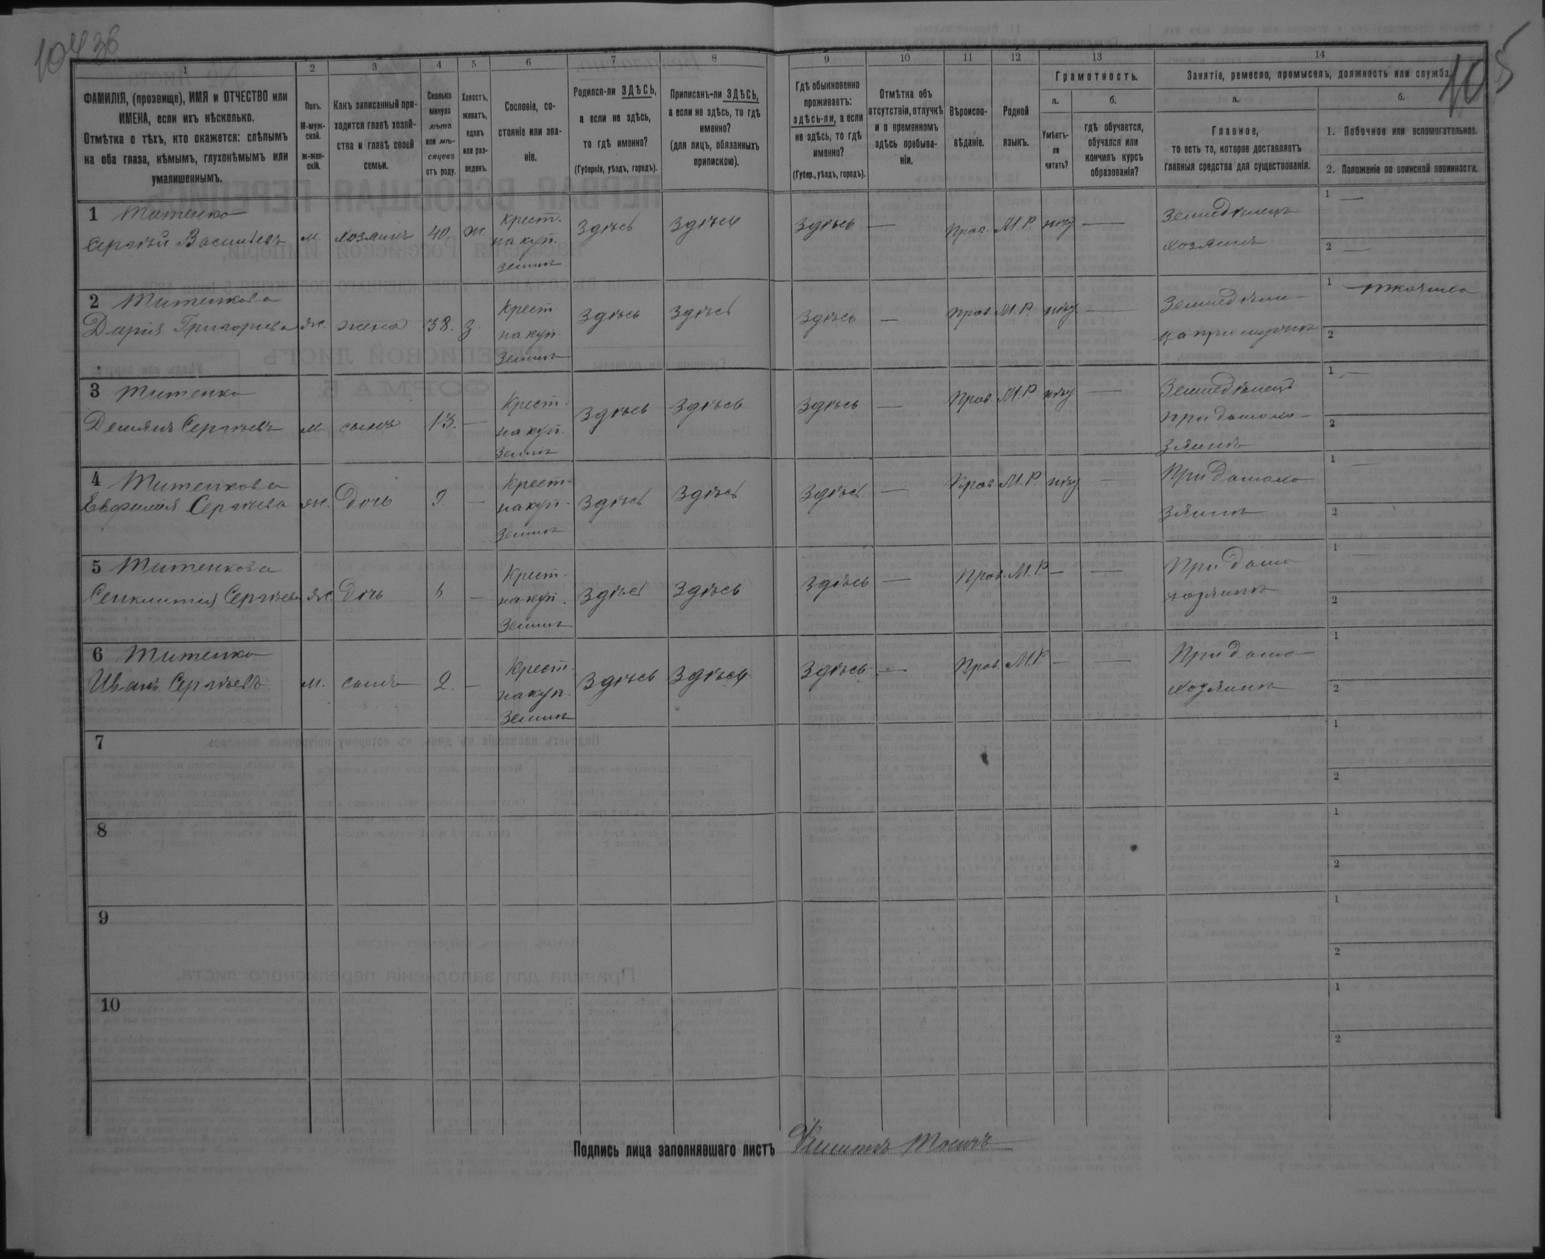 10436
105
1
2
3
4
5
6
7
8
9
10
11
12
13
14
ФАМИЛІЯ, (прозвище), ИМЯ и ОТЧЕСТВО или
ИМЕНА, если ихъ нѣсколько.
Отмѣтка о тѣхъ, кто окажется: слѣпымъ
на оба глаза, нѣмымъ, глухонѣмымъ или
умалишеннымъ.
Полъ.
М-муж-
ской.
ж-жен-
скій.
Какъ записанный при-
ходится главѣ хозяй-
ства и главѣ своей
семьи.
Сколько
минуло
лѣтъ
или мѣ-
сяцевъ
отъ роду.
Холостъ,
женатъ,
вдовъ
или раз-
веденъ.
Сословіе, со-
стояніе или зва-
ніе.
Родился-ли ЗДѢСЬ,
а если не здѣсь,
то гдѣ именно?
(Губернія, уѣздъ, городъ).
Приписанъ-ли ЗДѢСЬ,
а если не здѣсь, то гдѣ
именно?
(для лицъ, обязанныхъ
припискою).
Гдѣ обыкновенно
проживаетъ:
здѣсь-ли, а если
не здѣсь, то гдѣ
именно?
(Губер., уѣздъ, городъ).
Отмѣтка объ
отсутствіи, отлучкѣ
и о временномъ
здѣсь пребыва-
ніи.
Вѣроиспо-
вѣданіе.
Родной
языкъ.
Грамотность.
а.
Умѣетъ-
ли
читать?
б.
гдѣ обучается,
обучался или
кончилъ курсъ
образованія?
Занятіе, ремесло, промыселъ, должность или служба.
а.
Главное,
то есть то, которое доставляетъ
главныя средства для существованія.
б.
1. Побочное или вспомогательное.
2. Положеніе по воинской повинности.
1 Титенко
Сергѣй Васильевъ м хозяинъ 40. ж.
Крест.
на куп.
земли
Здѣсь Здѣсь Здѣсь — Прав. М.Р. нѣту —
Земледѣлецъ
хозяинъ
1 —
2 —
2 Титенкова
Дарія Григорьева ж. жена 38. з.
Крест
на куп
земли
Здѣсь Здѣсь Здѣсь — прав. М.Р. нѣту —
Земледѣлі-
1
2
3 Титенко
Демьянъ Сергѣевъ м сынъ 13. —
Крест.
на куп.
земли
Здѣсь Здѣсь Здѣсь — Прав М.Р нѣту —
Земледѣлецъ
при домохо-
зяинѣ
1 —
2
4 Титенкова
Евфимія Сергѣева ж. Дочь 9. —
Крест.
на куп.
земли
Здѣсь Здѣсь Здѣсь — Прав М.Р нѣту —
При домохо
зяинѣ
1 —
2
5 Титенкова
Сенклитія Сергѣева ж Дочь —
Крест.
на куп.
земли
Здѣсь Здѣсь Здѣсь — Прав. М.Р — —
При домо
хозяинѣ
1 —
2
6 Титенко
Иванъ Сергѣевъ м. сынъ 2. —
Крест.
на куп.
земли
Здѣсь Здѣсь Здѣсь — Прав. М.Р — —
При домо
хозяинѣ
1
2
7
1
2
8
1
2
9
1
2
10
1
2
Подпись лица заполнявшаго листъ